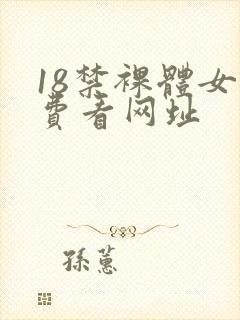 18禁裸體女
費看网址
孫蕙